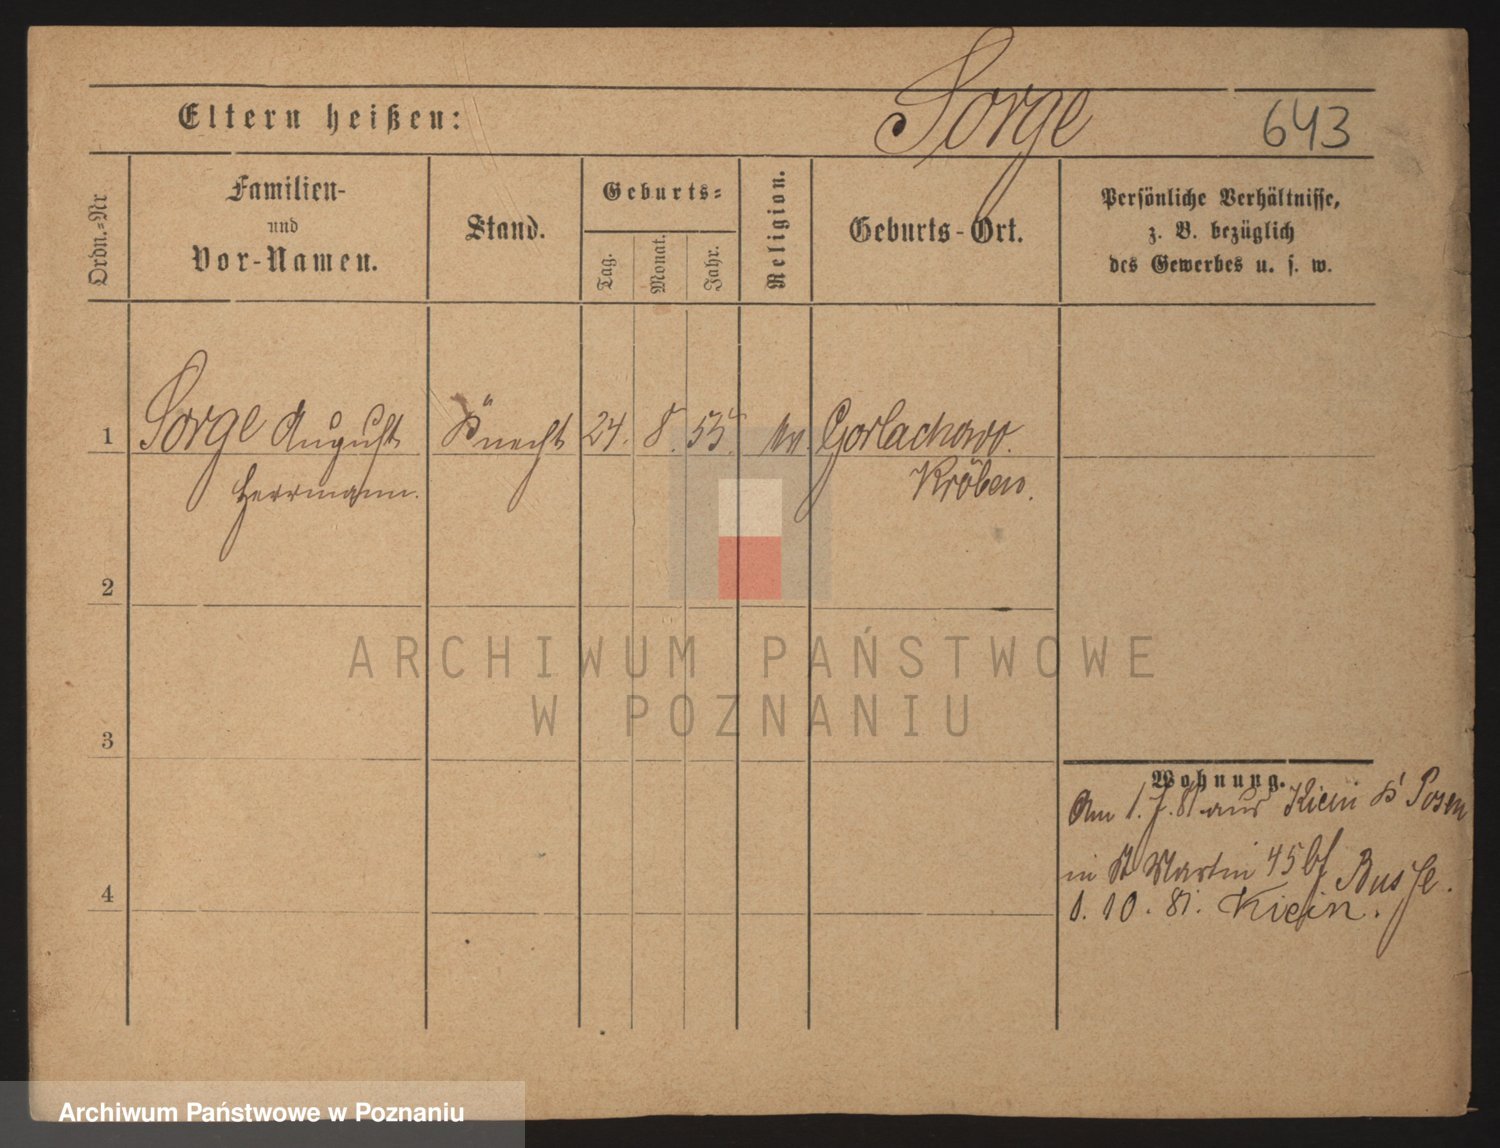 Sorge
643
Eltern heißen:
Ordn.-Nr
Familien-
und
Vor-Namen.
Stand.
Geburts-
Tag.
Monat.
Jahr.
Religion.
Geburts-Ort.
Persönliche Verhältnisse,
z. B. bezüglich
des Gewerbes u. s. w.
1 Sorge August Knecht 24. 8. 55. Gorlachowo.
Herrmann. Kröben.
2
3
4
Wohnung.
Am 1. 7. 81 aus Kicin Posen
in St Martin 45 bf Busse.
1. 10. 81. Kicin.
ARCHIWUM PAŃSTWOWE
W POZNANIU
Archiwum Państwowe w Poznaniu